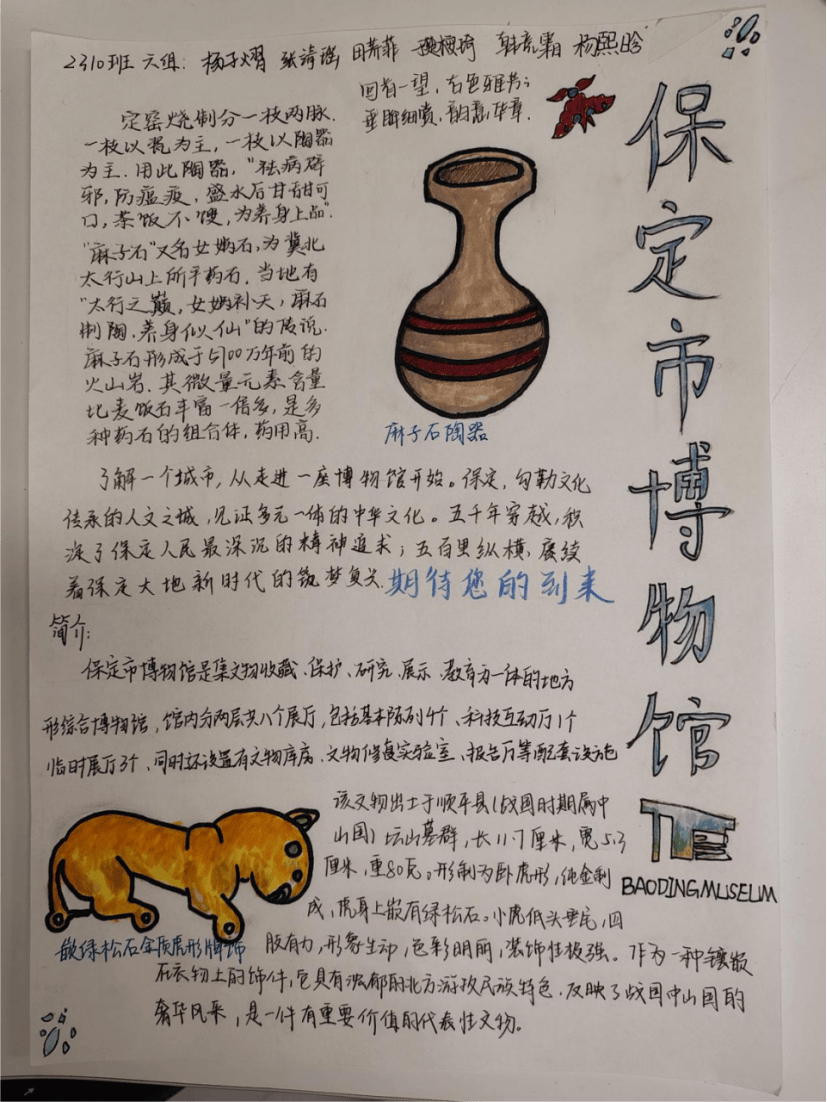 2310班 六组: 杨子熠 张诗瑶 田芳菲 杨熙晗
回首一望,古色雅书;
垂眸细赏,韵意华章.
保定市博物馆
定窑烧制分一枝两脉.
一枝以瓷为主,一枝以陶器
为主.用此陶器,“祛病辟
邪,防瘟疫,盛水后甘甜可
口,茶饭不馊,为养身上品”.
“麻子石”又名女娲石,为冀北
太行山上所平药石.当地有
“太行之巅,女娲补天,麻石
制陶.养身似仙”的传说.
麻子石形成于5700万年前的
火山岩.其微量元素含量
比麦饭石丰富一倍多,是多
种药石的组合体,药用高.
麻子石陶器
了解一个城市,从走进一座博物馆开始。保定,勾勒文化
传承的人文之城,见证多元一体的中华文化。五千年穿越,积
淀了保定人民最深沉的精神追求;五百里纵横,赓续
着保定大地新时代的筑梦复兴.期待您的到来
简介:
保定市博物馆是集文物收藏、保护、研究、展示、教育为一体的地方
形综合博物馆,馆内分两层共八个展厅,包括基本陈列4个、科技互动厅1个
临时展厅3个、同时还设置有文物库房、文物修复实验室、报告厅等配套设施
该文物出土于顺平县(战国时期属中
山国)坛山墓群,长11.7厘米,宽5.3
厘米,重80克。形制为卧虎形,纯金制
成,虎身上嵌有绿松石。小虎低头垂尾,四
肢有力,形象生动,色彩明丽,装饰性极强。作为一种镶嵌
在衣物上的饰件,它具有浓郁的北方游牧民族特色.反映了战国中山国的
奢华风采,是一件有重要价值的代表性文物。
嵌绿松石金质虎形牌饰
BAODINGMUSEUM